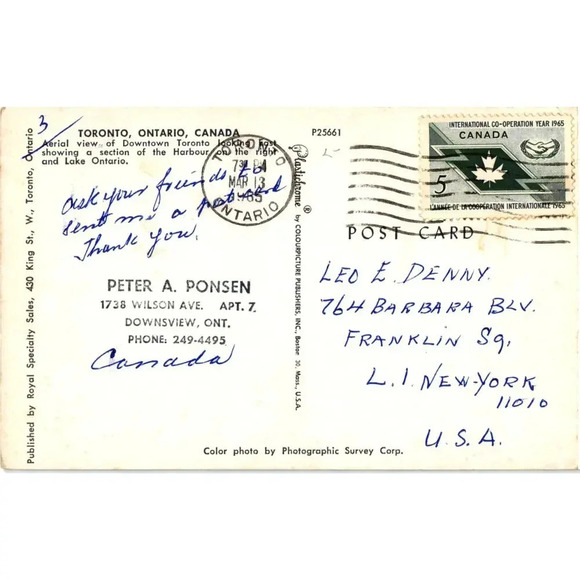 3
TORONTO, ONTARIO, CANADA
Aerial view of Downtown Toronto looking East
showing a section of the Harbour on the right
and Lake Ontario.
P25661
ask your friends to
sent me a post card
Thank you.
PETER A. PONSEN
1738 WILSON AVE. APT. 7,
DOWNSVIEW, ONT.
PHONE: 249-4495
Canada
Published by Royal Specialty Sales, 430 King St., W., Toronto, Ontario
Plastichrome ®
by COLOURPICTURE PUBLISHERS, INC., Boston 30, Mass., U.S.A.
TORONTO
MAR 13
1965
ONTARIO
INTERNATIONAL CO-OPERATION YEAR 1965
CANADA
5
L'ANNÉE DE LA COOPÉRATION INTERNATIONALE 1965
POST CARD
LEO E. DENNY.
764 BARBARA BLV.
FRANKLIN SQ,
L.I. NEW-YORK
11010
U.S.A.
Color photo by Photographic Survey Corp.